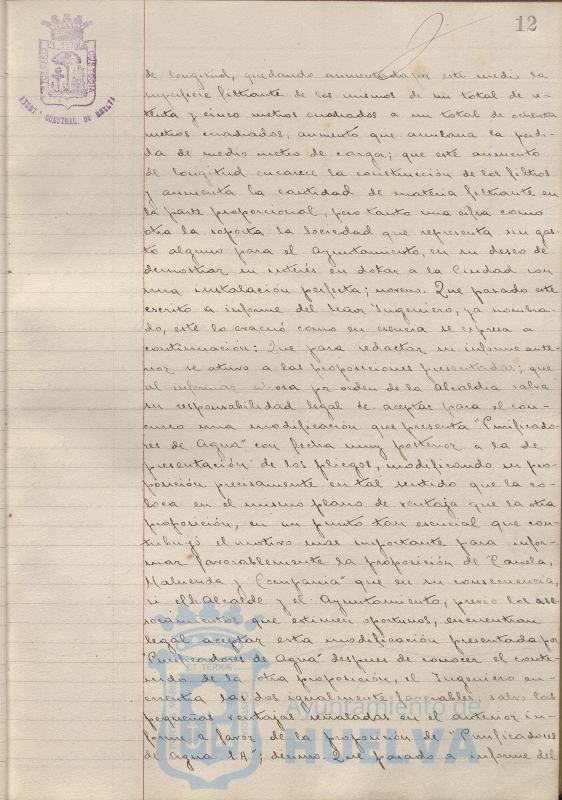 12
PORTUS MARIS ET TERRAE CUSTODIA
AYUNT. CONSTNAL. DE HUELVA
de longitud, quedando aumentada por este medio la
superficie filtrante de los mismos de un total de se-
tenta y cinco metros cuadrados a un total de ochenta
metros cuadrados, aumento que anulaba la perdi-
da de medio metro de carga; que este aumento
de longitud encarece la construcción de los filtros
y aumenta la cantidad de materia filtrante en
la parte proporcional, pero tanto una cifra como
otra la soporta la Sociedad que representa sin gas-
to alguno para el Ayuntamiento, en su deseo de
demostrar su interés en dotar a la Ciudad con
una instalación perfecta; noveno. Que pasado este
escrito a informe del Señor Ingeniero, ya nombra-
do, este lo evacuó como en esencia se expresa a
continuación: Que para redactar su informe ante-
rior se atuvo a las proposiciones presentadas; que
al informar ahora por orden de la Alcaldia salva
su responsabilidad legal de aceptar para el con-
curso una modificación que presenta "Purificado-
res de Agua" con fecha muy posterior a la de
presentación de los pliegos, modificando su pro-
posición precisamente en tal sentido que la co-
loca en el mismo plano de ventaja que la otra
proposición, en un punto tan esencial que con-
tribuyó el motivo mas importante para infor-
mar favorablemente la proposición de "Canela,
Maluenda y Compañia" que en su consecuencia,
si el Alcalde y el Ayuntamiento, previo los ase-
soramientos que estimen oportunos, encuentran
legal aceptar esta modificación presentada por
"Purificadores de Agua" despues de conocer el conte-
nido de la otra proposición, el Ingeniero en-
cuentra las dos igualmente favorables, salvo las
pequeñas ventajas señaladas en el anterior in-
forme a favor de la proposición de "Purificadores
de Agua S.A"; decimo. Que pasado a informe del
Ayuntamiento de
HUELVA